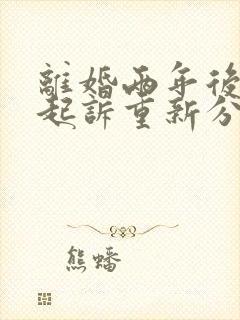 離婚兩年後
起訴重新分
熊蟠